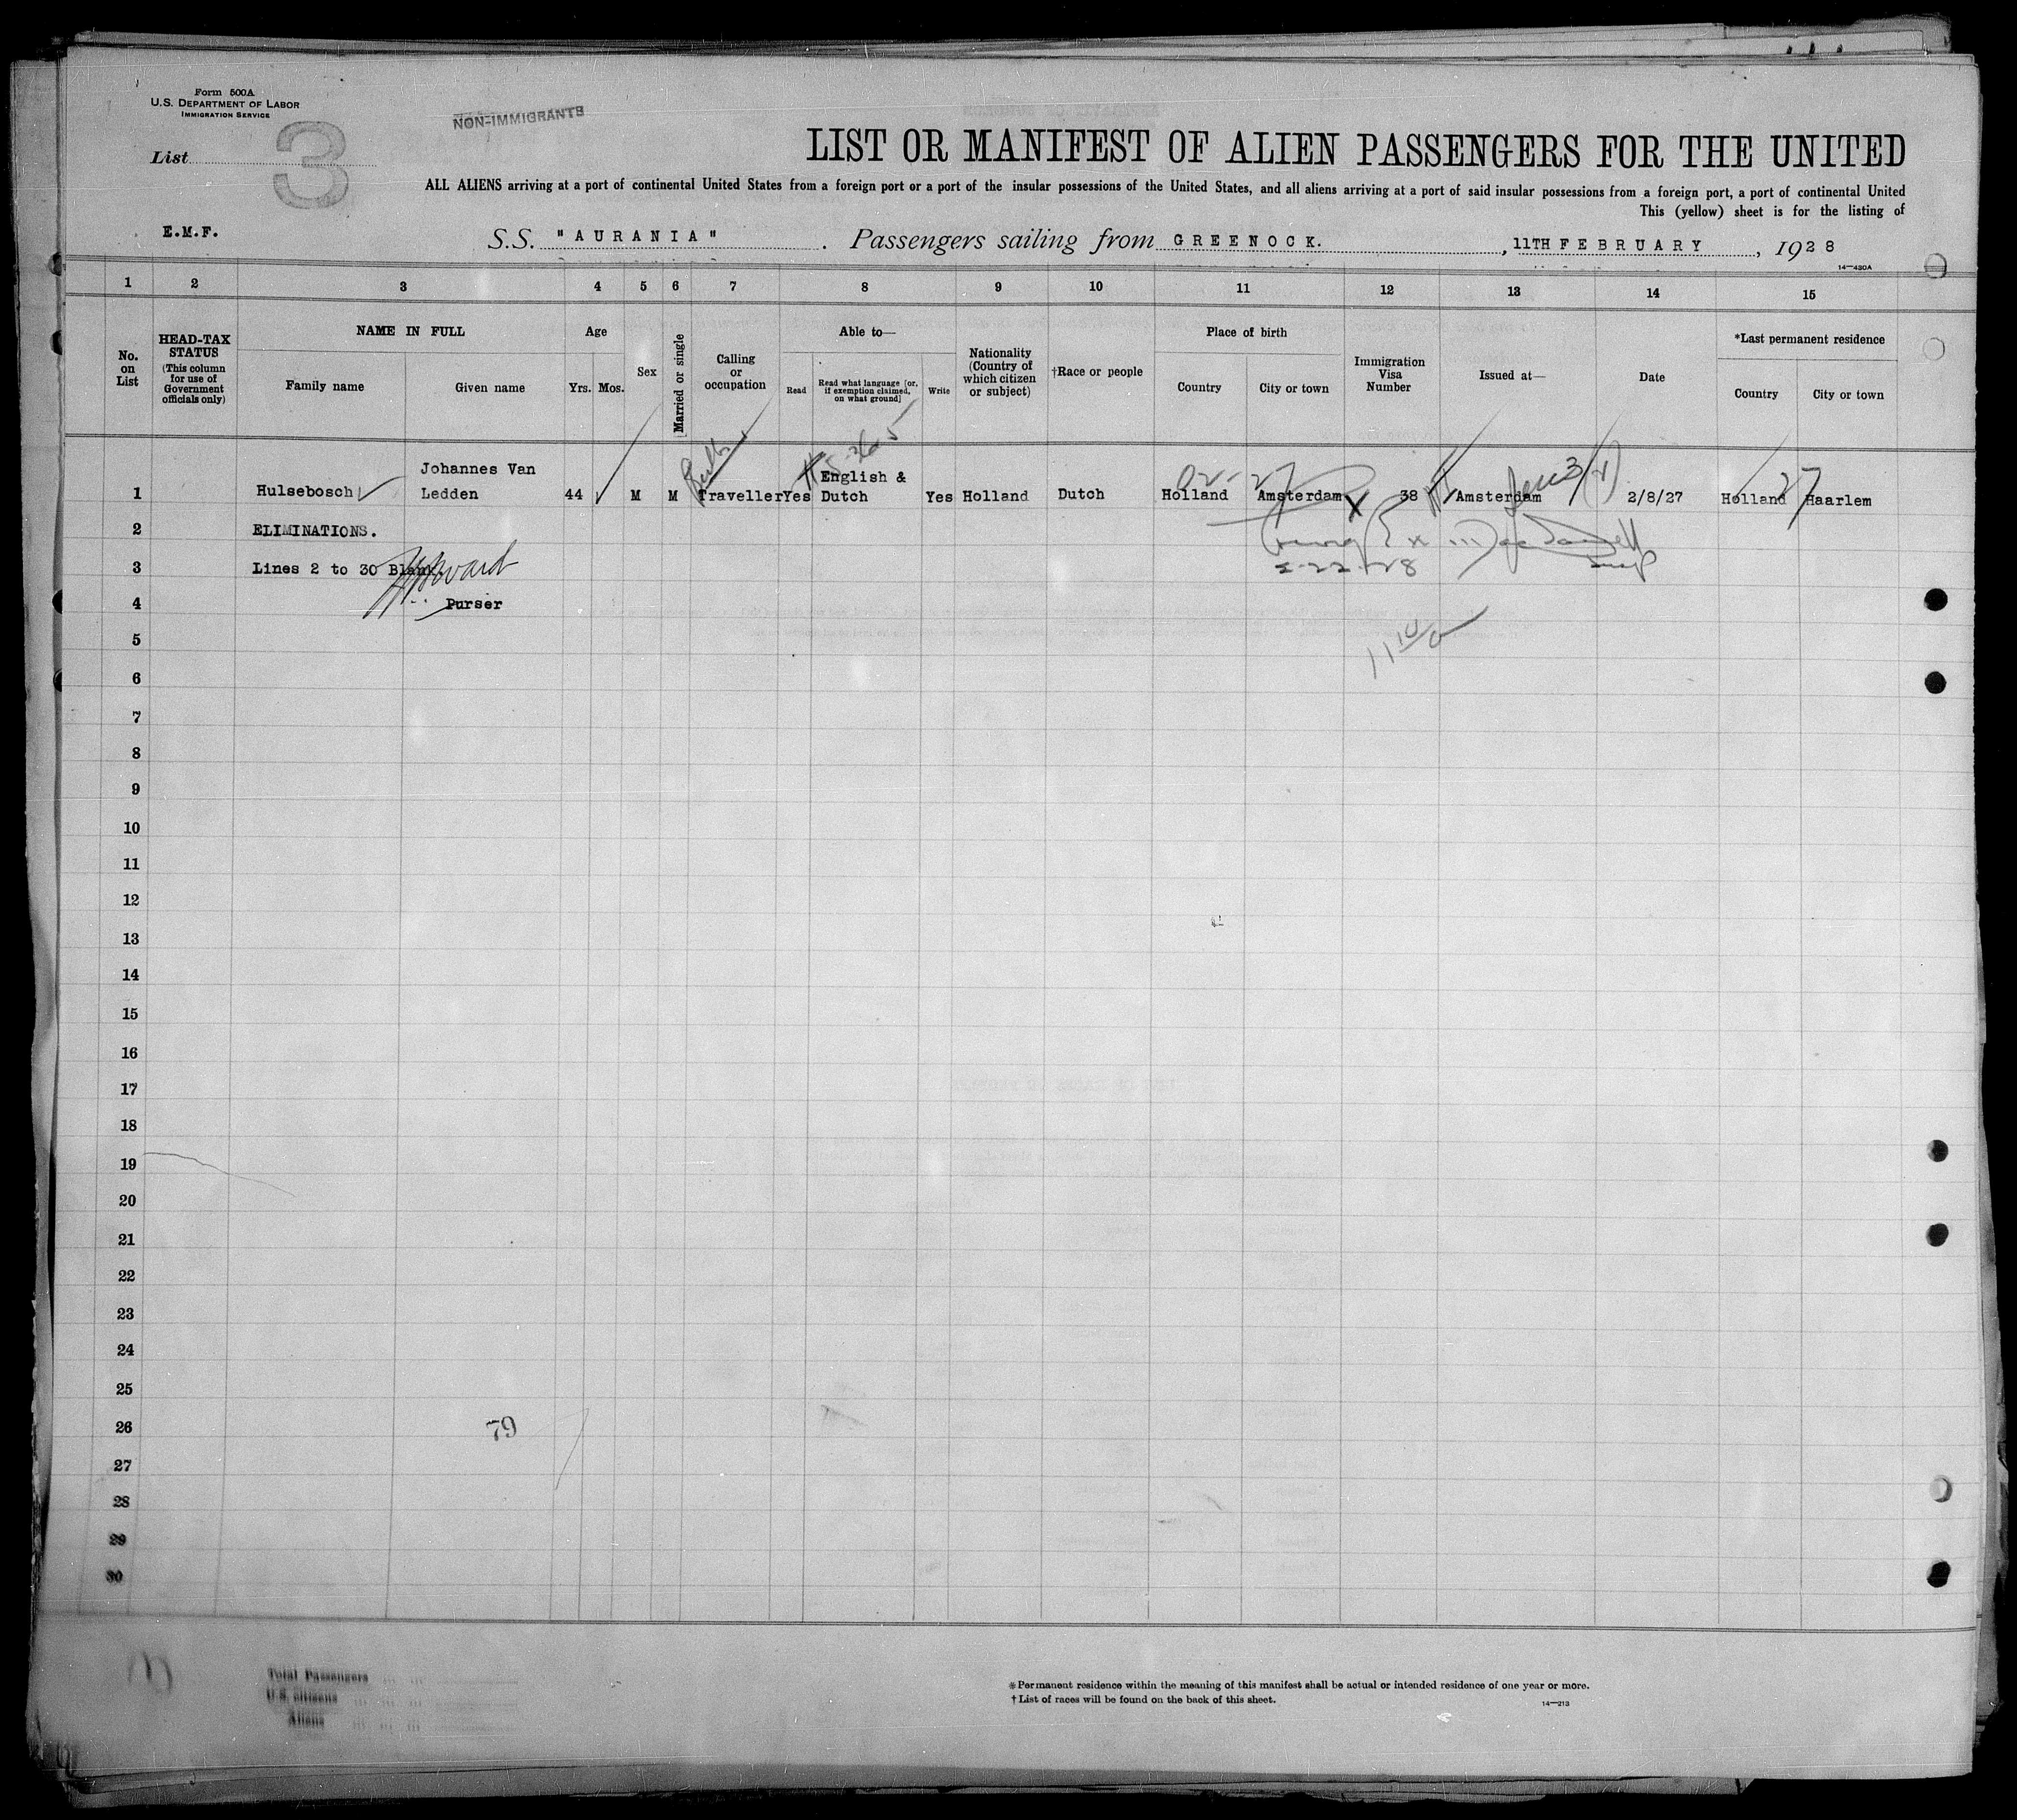 Form 500A
U.S. DEPARTMENT OF LABOR
IMMIGRATION SERVICE
NON-IMMIGRANTS
List 3
LIST OR MANIFEST OF ALIEN PASSENGERS FOR THE UNITED
ALL ALIENS arriving at a port of continental United States from a foreign port or a port of the insular possessions of the United States, and all aliens arriving at a port of said insular possessions from a foreign port, a port of continental United
This (yellow) sheet is for the listing of
E.M.F.
S.S. "AURANIA" . Passengers sailing from GREENOCK. , 11TH FEBRUARY , 1928
14—430A
1 2 3 4 5 6 7 8 9 10 11 12 13 14 15
No. on List
HEAD-TAX STATUS
(This column for use of Government officials only)
NAME IN FULL
Family name
Given name
Age
Yrs. Mos.
Sex
Married or single
Calling or occupation
Able to—
Read
Read what language [or, if exemption claimed, on what ground]
Write
Nationality (Country of which citizen or subject)
†Race or people
Place of birth
Country
City or town
Immigration Visa Number
Issued at—
Date
*Last permanent residence
Country
City or town
1 Hulsebosch Johannes Van Ledden 44 M M Traveller Yes English & Dutch Yes Holland Dutch Holland Amsterdam 38 Amsterdam 2/8/27 Holland Haarlem
2 ELIMINATIONS.
3 Lines 2 to 30 Blank
2-22-28
4 Purser
5
6
7
8
9
10
11
12
13
14
15
16
17
18
19
20
21
22
23
24
25
26
79
27
28
29
30
Total Passengers
U.S. citizens
Aliens
*Permanent residence within the meaning of this manifest shall be actual or intended residence of one year or more.
†List of races will be found on the back of this sheet.
14—213